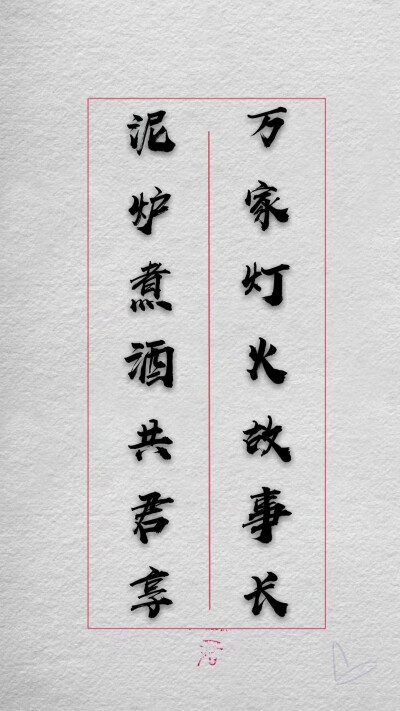 万家灯火故事长
泥炉煮酒共君享